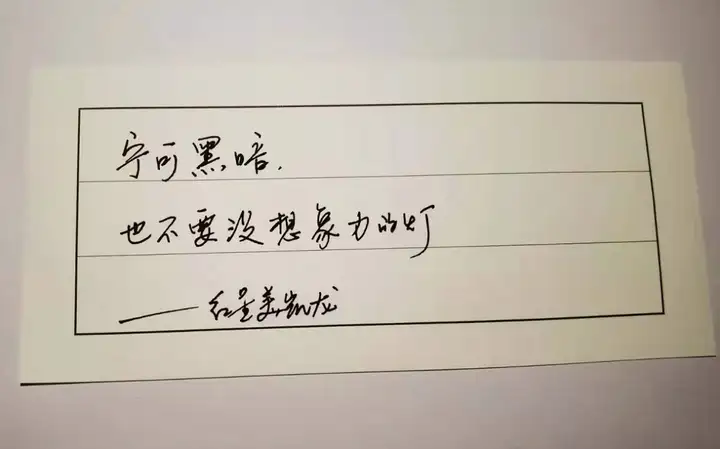 宁可黑暗.
也不要没想象力的灯
——红星美凯龙